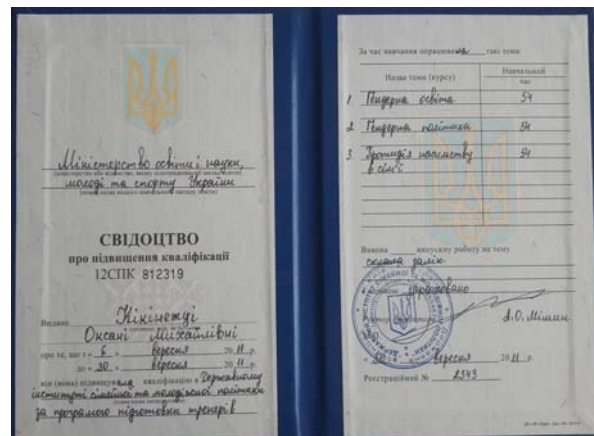 Міністерство освіти і науки,
молоді та спорту України
СВІДОЦТВО
про підвищення кваліфікації
12СПК 812319
Видано Кікінежді
Оксані Михайлівні
про те, що з « 6 » вересня 2011 р.
до « 30 » вересня 2011 р.
він (вона) підвищувала кваліфікацію в Державному
інституті сімейної та молодіжної політики
за програмою підготовки тренерів
За час навчання опрацювала такі теми:
Назва теми (курсу)
Навчальний
час
1. Гендерна освіта 54
2. Гендерна політика 54
3. Протидія насильству 54
в сім'ї
Виконала випускну роботу на тему
склала залік
зараховано
« 30 » вересня 2011 р.
Реєстраційний № 2343